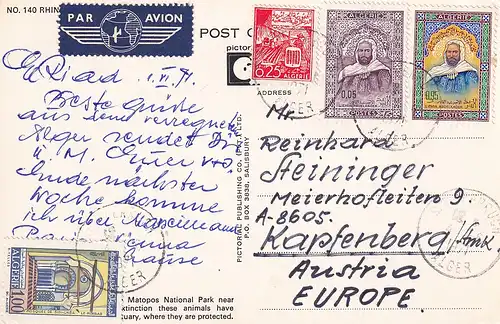 NO. 140 RHIN
PAR AVION
POST C
pictor
ADDRESS
El Riad, 1.VI.71
Beste Grüße
aus dem verregneten
Alger sendet Dir
u. M.
Ende nächster
Woche komme
ich über
hause
Matopos National Park near
xtinction these animals have
uary, where they are protected.
PICTORIAL PUBLISHING CO. (PVT.) LTD.
P.O. BOX 3039, SALISBURY
0.25 ALGERIE
ALGERIE
0,05
POSTES
ALGERIE
0,95
POSTES
ALGERIE
1.00
ALGER
ALGER
ALGER
ALGER
Mr.
Reinhard
Steininger
Meierhofleiten 9
A-8605
Kapfenberg/Stmk
Austria
EUROPE